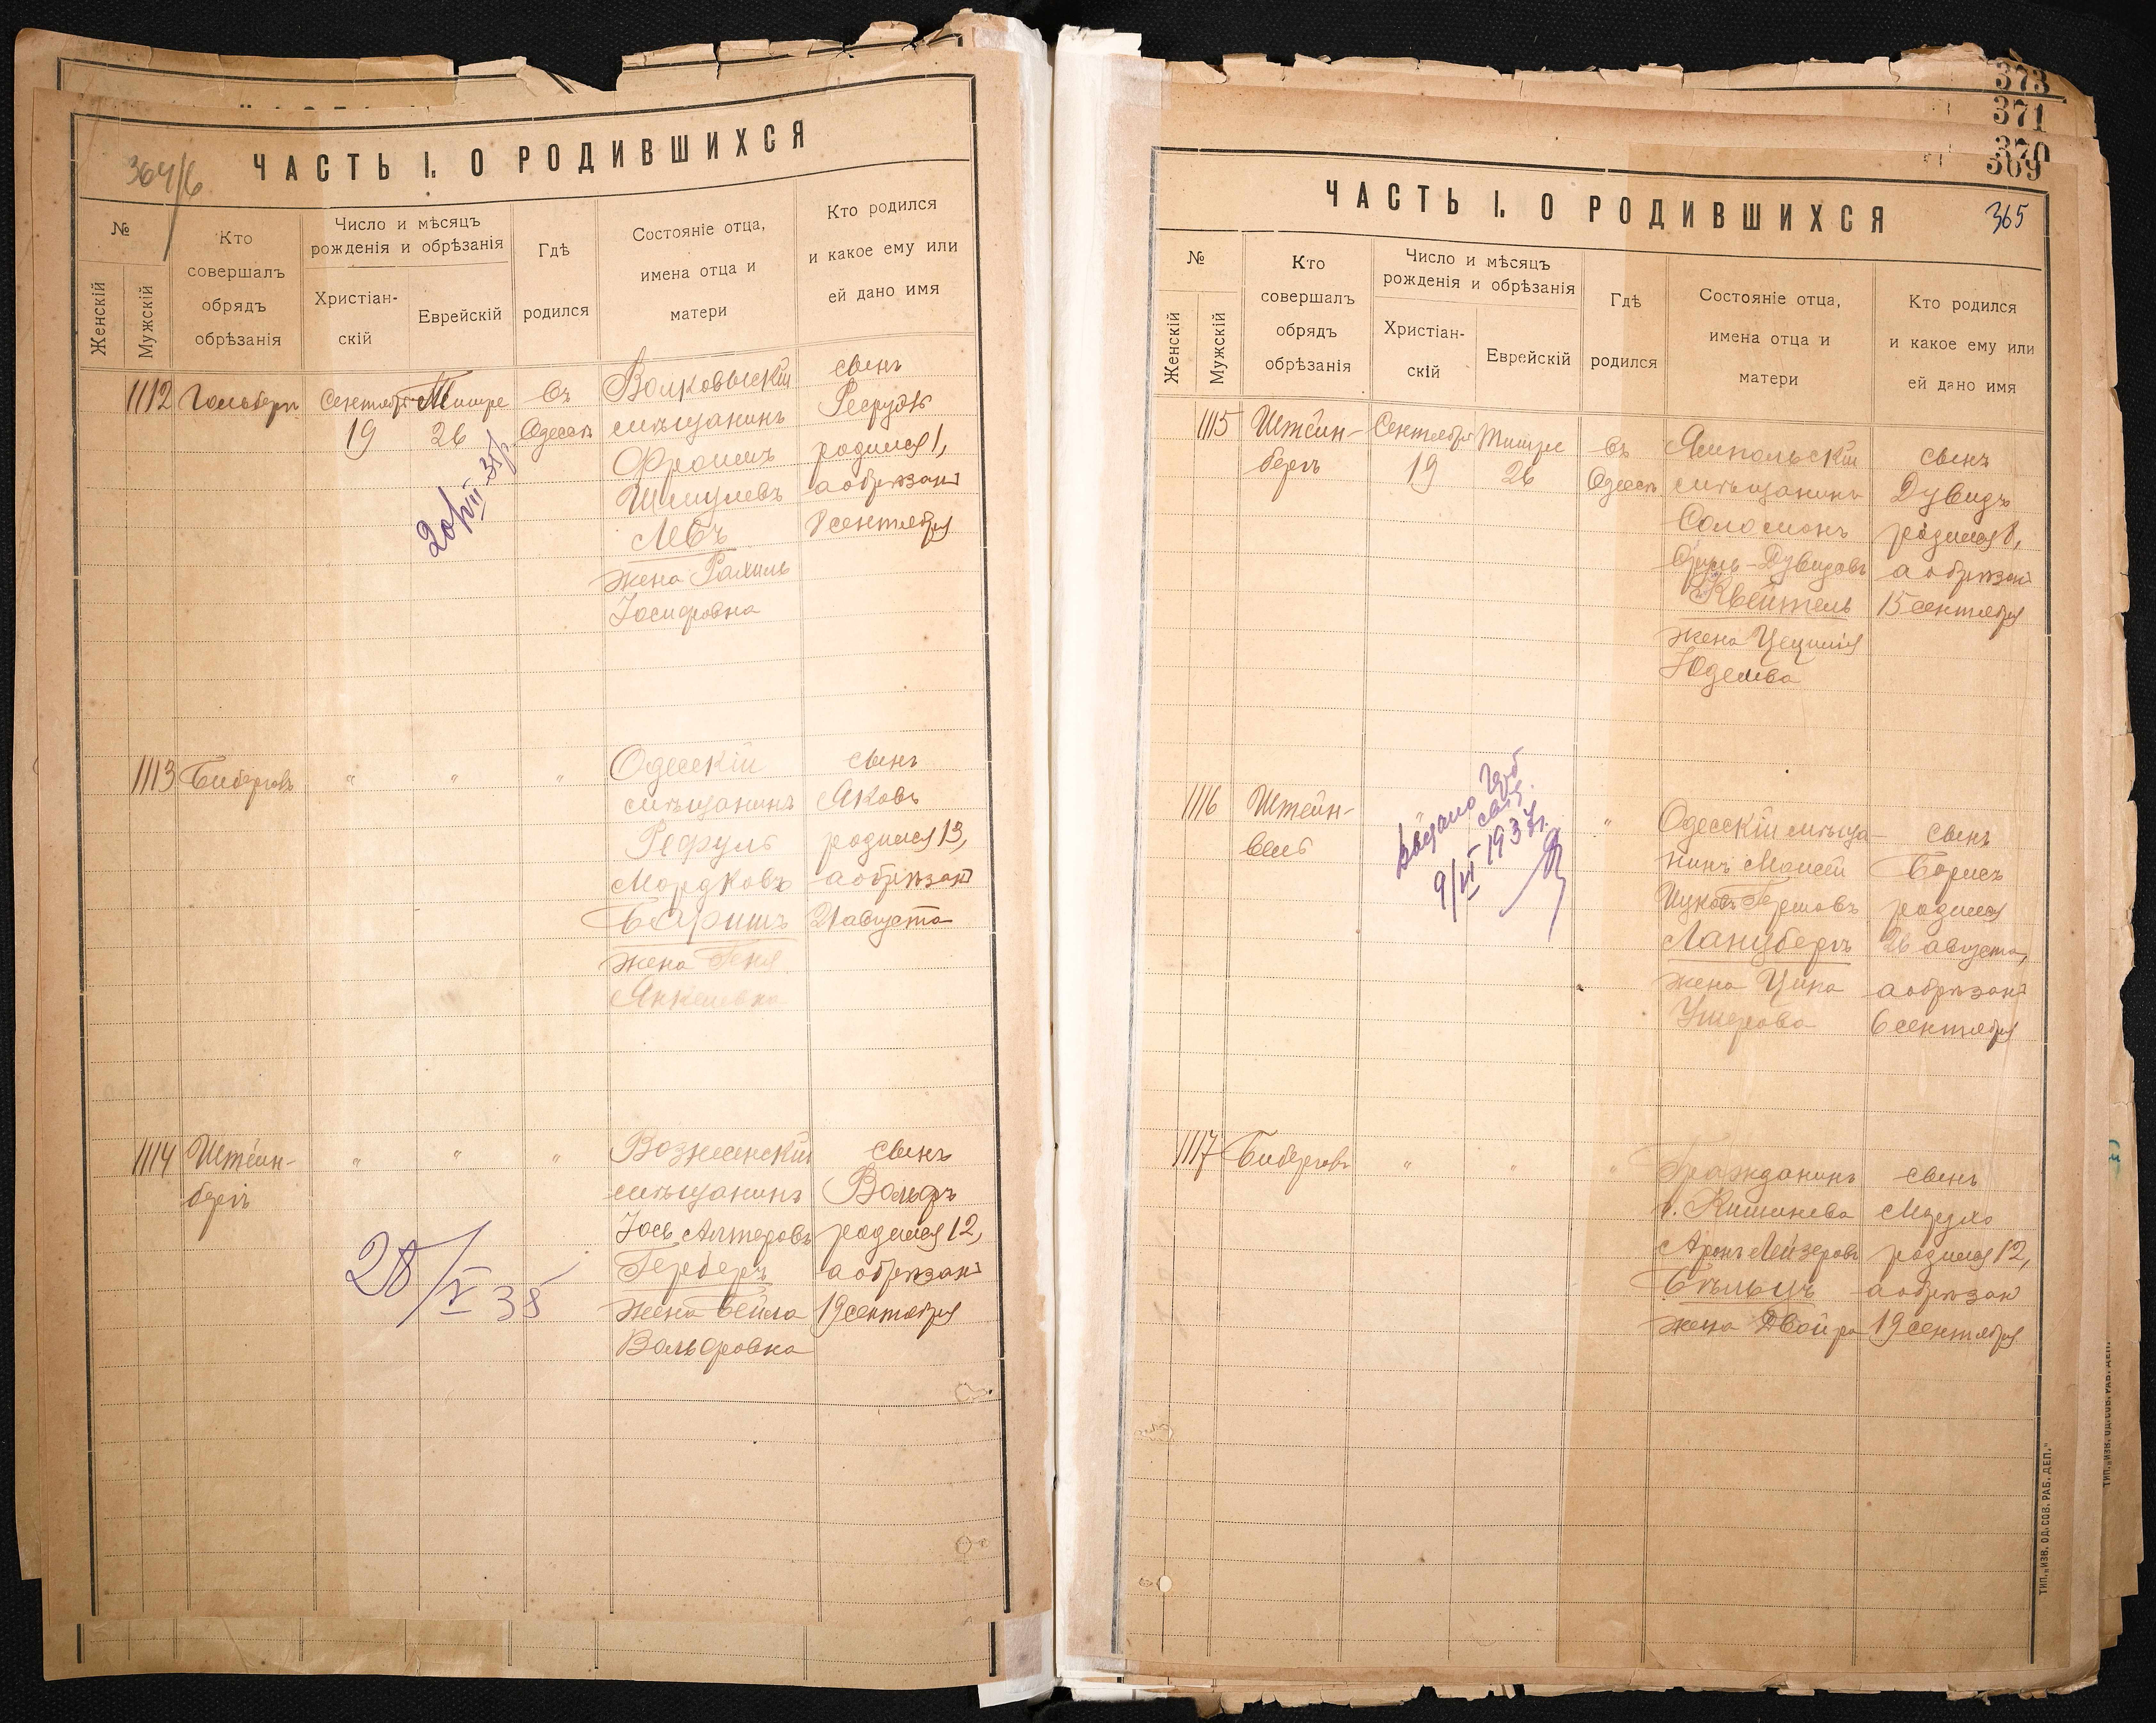 364/6
ЧАСТЬ I. О РОДИВШИХСЯ
№
Женскій
Мужскій
Кто
совершалъ
обрядъ
обрѣзанія
Число и мѣсяцъ
рожденія и обрѣзанія
Христіан-
скій
Еврейскій
Гдѣ
родился
Состояніе отца,
имена отца и
матери
Кто родился
и какое ему или
ей дано имя
1112
Гольберг
Сентября
19
Тишре
26
въ
Одессѣ
Волковыскій
мѣщанинъ
Фроимъ
Шмулевъ
Лебъ
жена Рахиль
Іосифовна
сынъ
родился 1,
а обрѣзанъ
8 сентября
20/VIII-37г.
1113
Биберговъ
"
"
"
Одесскій
мѣщанинъ
Рефуль
Мордковъ
Баришъ
жена Геня
Янкелевна
сынъ
Яковъ
родился 13,
а обрѣзанъ
21 августа
1114
Штейн-
бергъ
"
"
"
Вознесенскій
мѣщанинъ
Іось Алтеровъ
Герберъ
жена Бейла
Вольфовна
сынъ
Вольфъ
родился 12,
а обрѣзанъ
19 сентября
28/V 38
373
371
370
369
365
ЧАСТЬ I. О РОДИВШИХСЯ
№
Женскій
Мужскій
Кто
совершалъ
обрядъ
обрѣзанія
Число и мѣсяцъ
рожденія и обрѣзанія
Христіан-
скій
Еврейскій
Гдѣ
родился
Состояніе отца,
имена отца и
матери
Кто родился
и какое ему или
ей дано имя
1115
Штейн-
бергъ
Сентября
19
Тишре
26
въ
Одессѣ
Ямпольскій
мѣщанинъ
Соломонъ
Сруль-Дувидовъ
Квейтель
жена Цецилія
Юделева
сынъ
Дувидъ
родился 8,
а обрѣзанъ
15 сентября
1116
Штейн-
"
Одесскій мѣща-
нинъ Моисей
Ицковъ-Гершовъ
Ланцбергъ
жена Ципа
Ушерова
сынъ
Борисъ
родился
26 августа,
а обрѣзанъ
6 сентября
Видано
9/VI 1937г.
1117
Биберговъ
"
"
"
Гражданинъ
г. Кишинева
Аронъ Лейзеровъ
Бѣльцъ
жена Двойра
сынъ
родился 12,
а обрѣзанъ
19 сентября
ТИП. „ИЗВ. ОД. СОВ. РАБ. ДЕП."